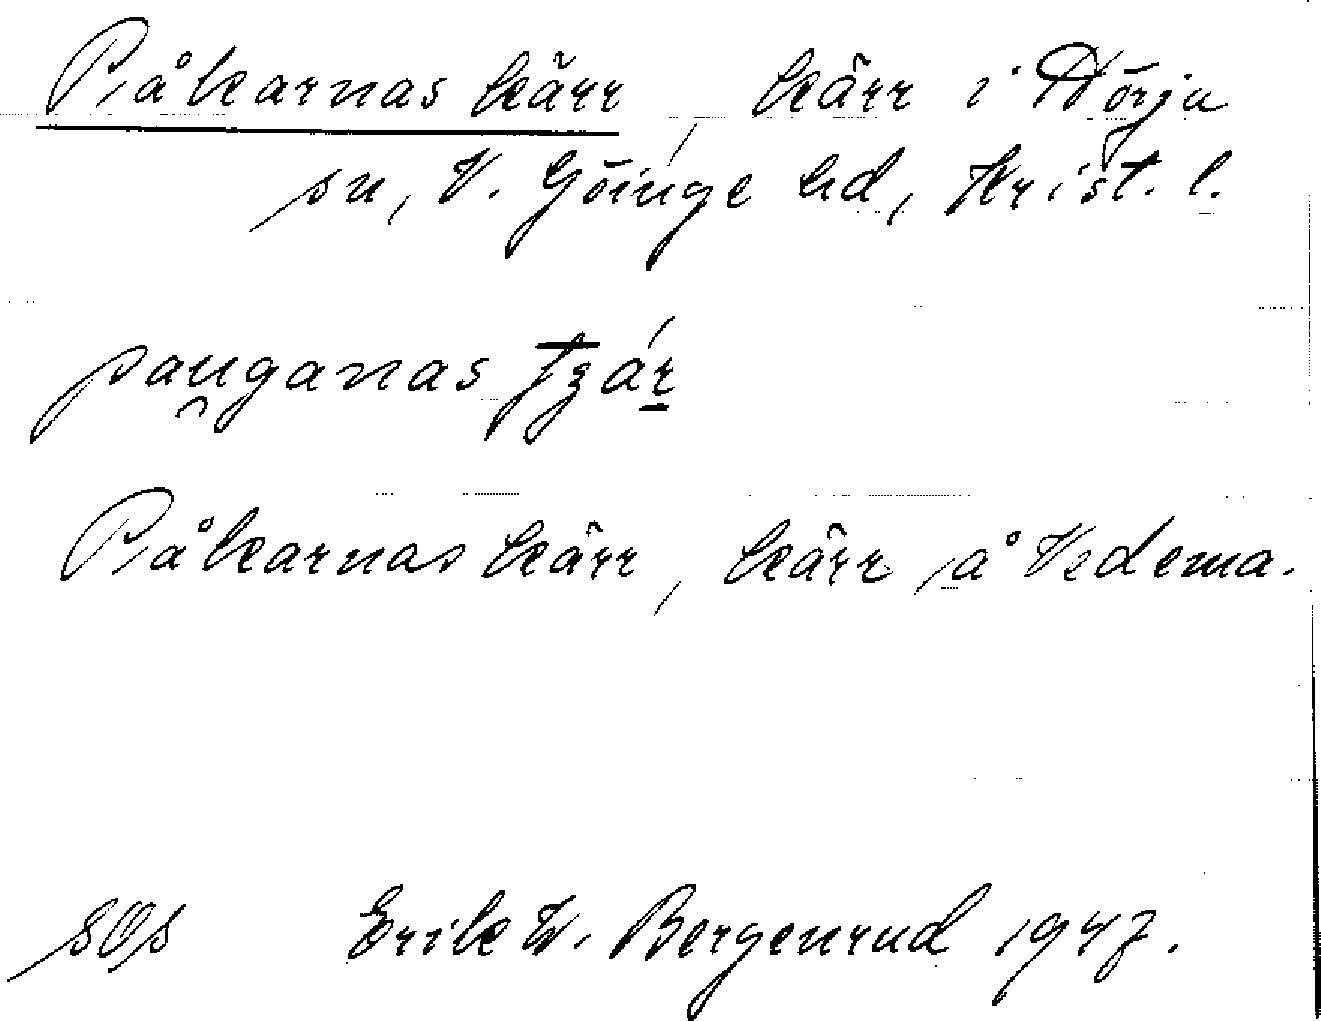 Påkarnas kärr, kärr i Nörju
sn, V. Göinge hd, Krist. l.
pau̯ganas
Påkarnas kärr, kärr på Vedema.
SOs Erik W. Bergenrud 1947.